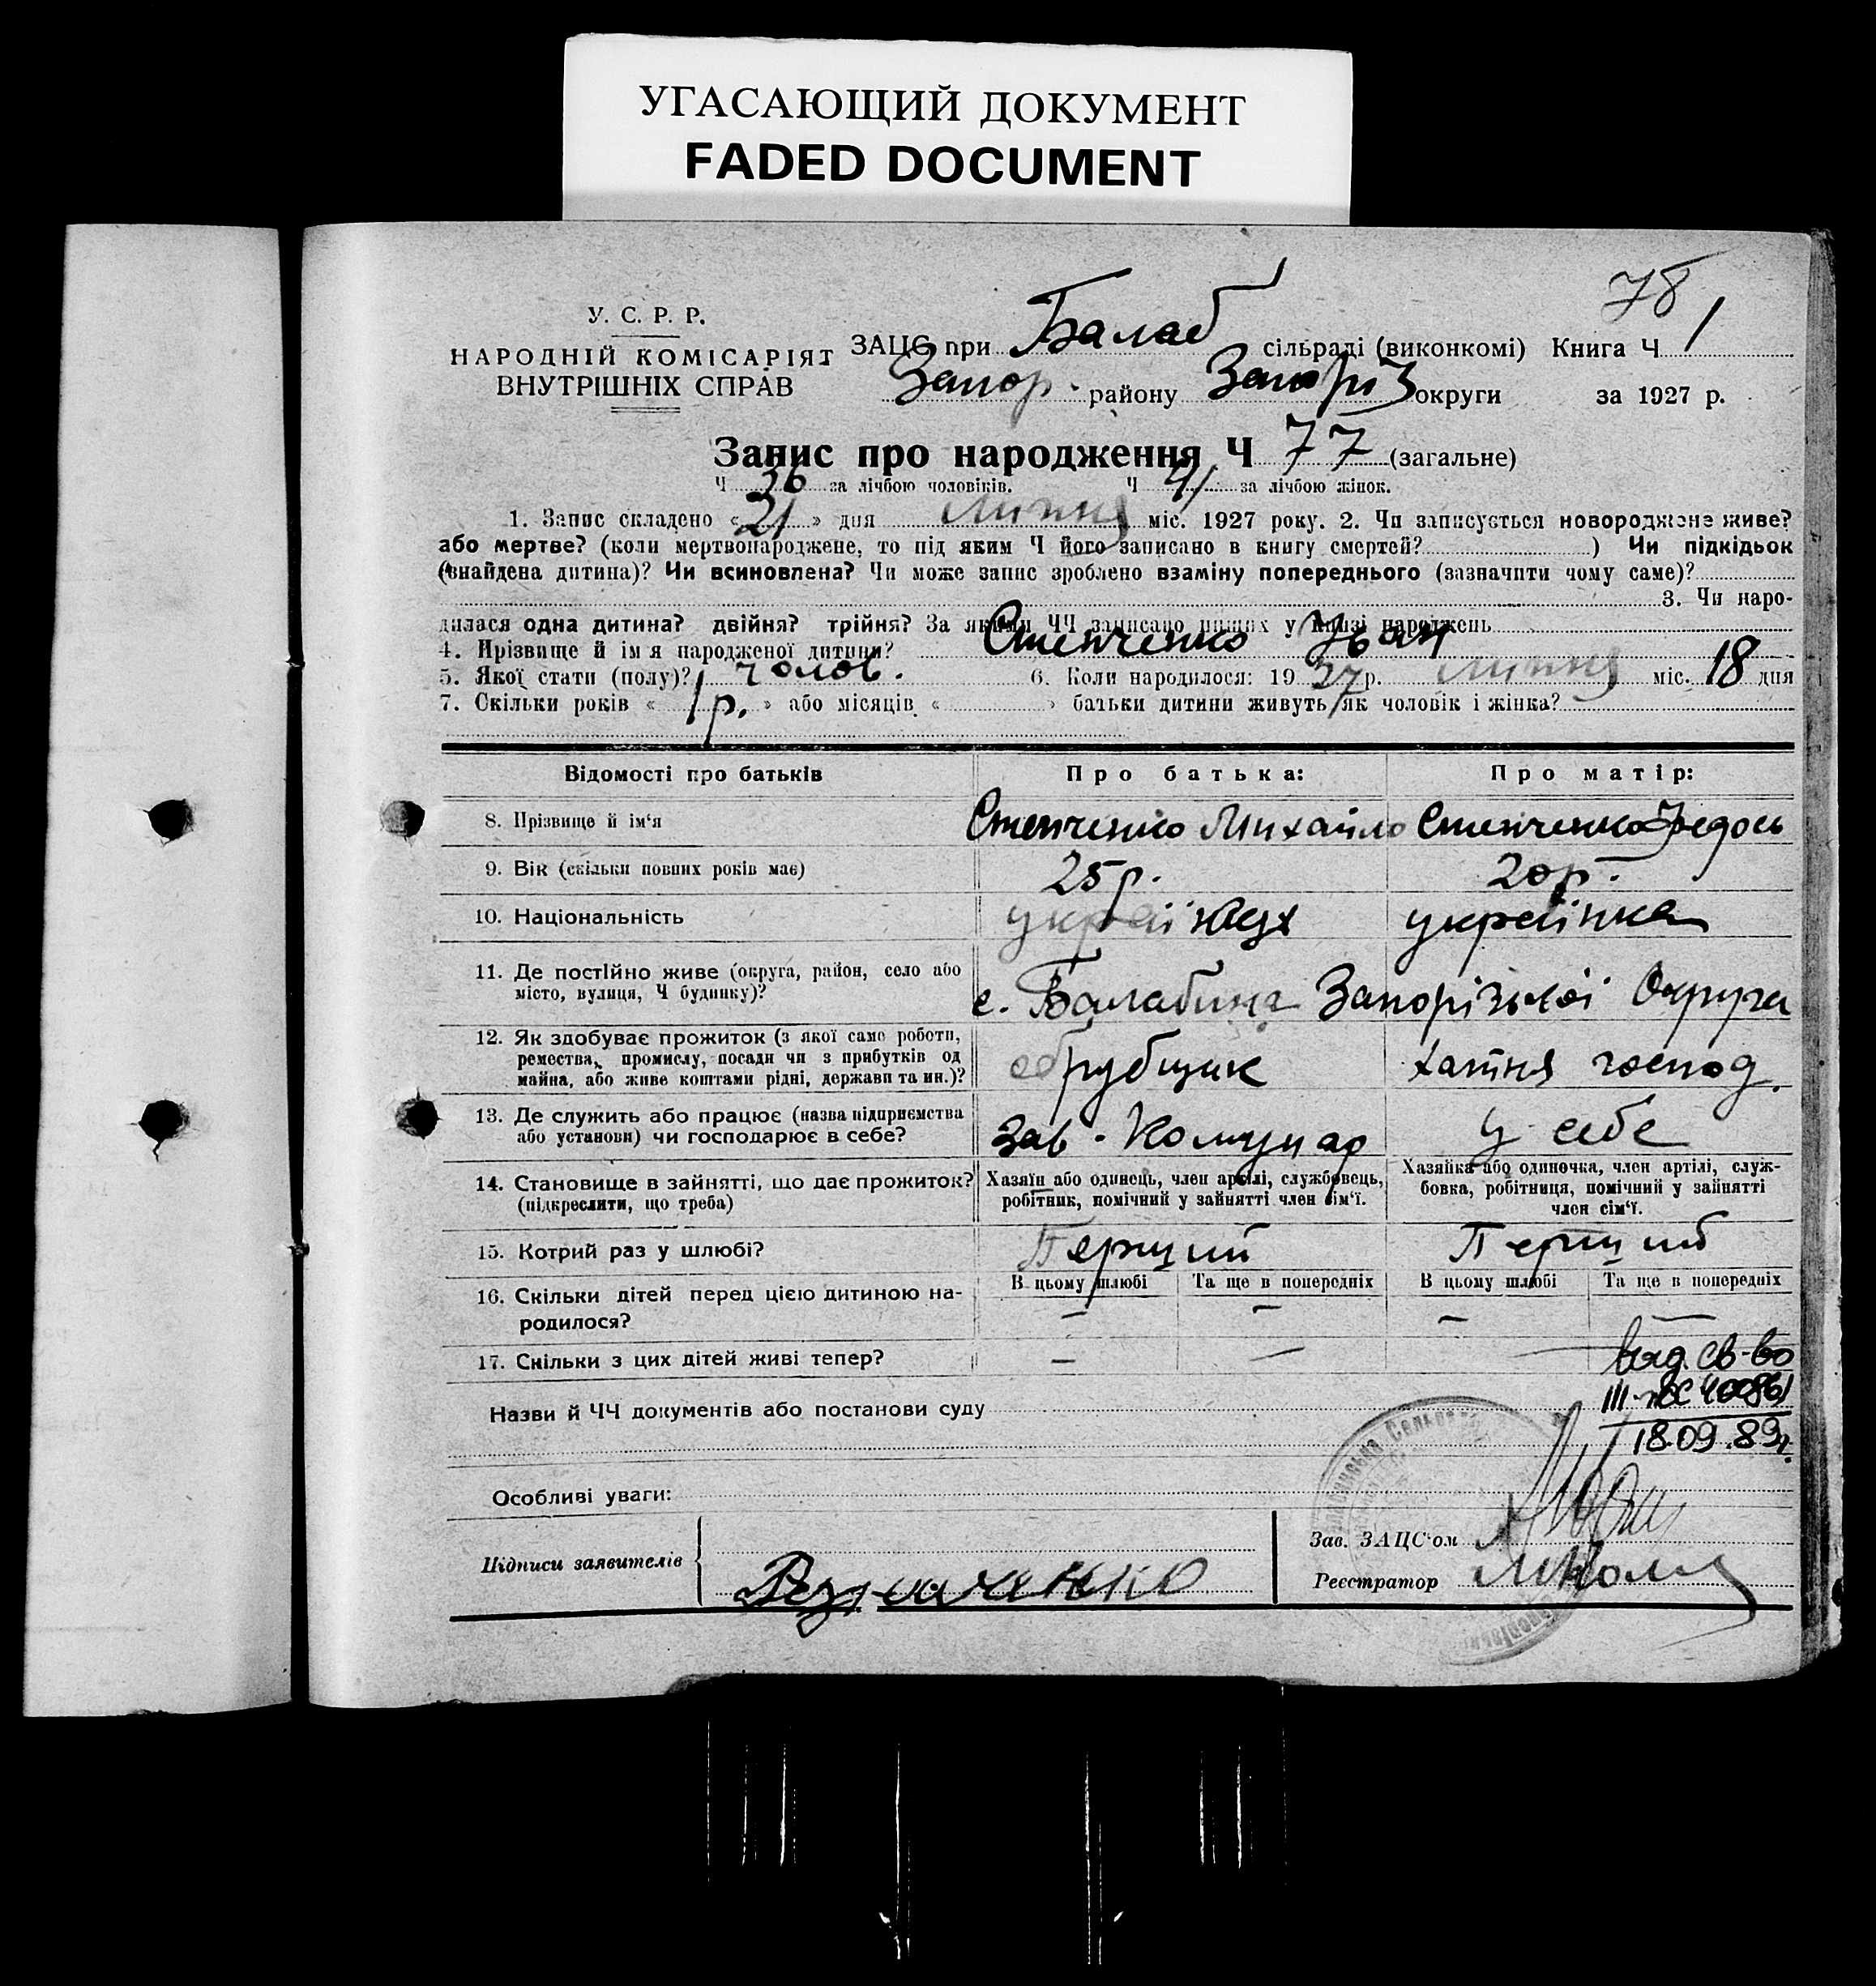 УГАСАЮЩИЙ ДОКУМЕНТ
FADED DOCUMENT
78
У. С. Р. Р.
НАРОДНІЙ КОМІСАРІЯТ
ВНУТРІШНІХ СПРАВ
ЗАЦС при Балаб сільраді (виконкомі) Книга Ч 1
Запор. району Запоріз округи за 1927 р.
Запис про народження Ч 77 (загальне)
Ч 36 за лічбою чоловіків. Ч 41 за лічбою жінок.
1. Запис складено «21» дня липня міс. 1927 року. 2. Чи записується новороджене живе?
або мертве? (коли мертвонароджене, то під яким Ч його записано в книгу смертей? ) Чи підкідьок
(знайдена дитина)? Чи всиновлена? Чи може запис зроблено взаміну попереднього (зазначити чому саме)?
3. Чи наро-
дилася одна дитина? двійня? трійня? За якими ЧЧ записано инших у книзі народжень
4. Прізвище й ім'я народженої дитини? Степченко Іван
5. Якої стати (полу)? чолов. 6. Коли народилося: 1927 р. липня міс. 18 дня
7. Скільки років «1 р.» або місяців « » батьки дитини живуть як чоловік і жінка?
Відомості про батьків Про батька: Про матір:
8. Прізвище й ім'я Степченко Михайло Степченко Федось
9. Вік (скільки повних років має) 25 р. 20 р.
10. Національність українец українка
11. Де постійно живе (округа, район, село або
місто, вулиця, Ч будинку)? с. Запорізької Округи
12. Як здобуває прожиток (з якої саме роботи,
ремества, промислу, посади чи з прибутків од
майна, або живе коштами рідні, держави та ин.)? обрубщик хатня господ.
13. Де служить або працює (назва підприємства
або установи) чи господарює в себе? Зав. Комунар у себе
14. Становище в зайнятті, що дає прожиток?
(підкреслити, що треба)
Хазяїн або одинець, член артілі, службовець,
робітник, помічний у зайнятті член сім'ї.
Хазяйка або одиночка, член артілі, служ-
бовка, робітниця, помічний у зайнятті
член сім'ї.
15. Котрий раз у шлюбі? Перший Перший
В цьому шлюбі Та ще в попередніх В цьому шлюбі Та ще в попередніх
16. Скільки дітей перед цією дитиною на-
родилося? – – – –
17. Скільки з цих дітей живі тепер? – – – –
выд. св-во
III-ЖС 400861
18.09.89г.
Назви й ЧЧ документів або постанови суду
Особливі уваги:
Підписи заявителів
Зав. ЗАЦС'ом
Реєстратор